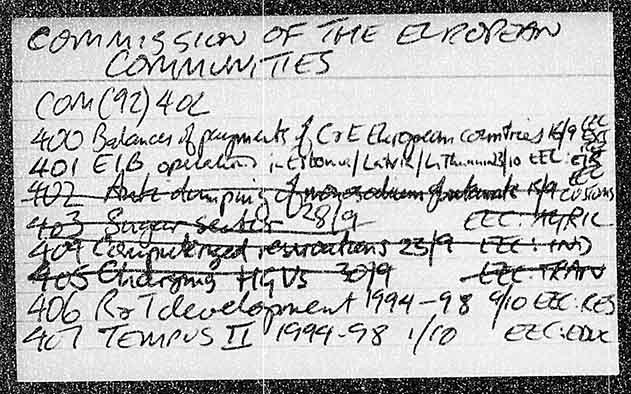 COMMISSION OF THE EUROPEAN
COMMUNITIES
COM(92)402
400 Balances of payments of C & E European countries 15/9 EEC EXT
401 EIB operations in Estonia/Latvia/Lithuania 23/10 EEC: EIB
402 Anti-dumping of monosodium glutamate 15/9 EEC CUSTOMS
403 Sugar sector 28/9 EEC: AGRIC
404 Computerized reservations 23/9 EEC: IND
405 Charging HGVs 30/9 EEC: TRAN
406 R & T development 1994-98 9/10 EEC: RES
407 TEMPUS II 1994-98 1/10 EEC: EDUC